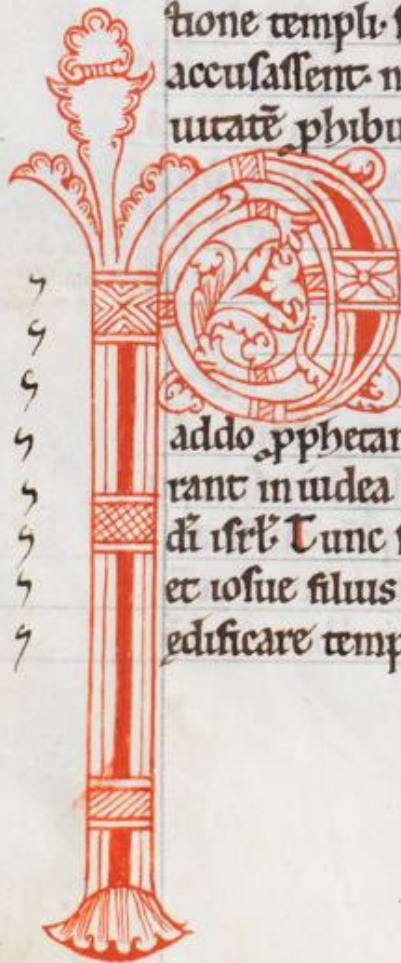 tione templi· 
accusassent· 
uitatē ꝓhibu
P
addo ꝓphetan
rant in iudea
dī isrł· Tunc
et iosue filius
edificare temp